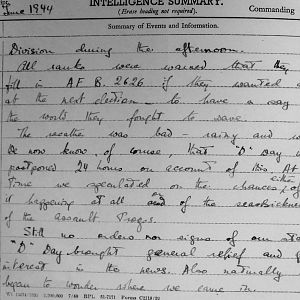 INTELLIGENCE SUMMARY.
(Erase heading not required).
Commanding
June 1944
Summary of Events and Information.
Division during the afternoon.
All ranks were warned that they
fill in A F B. 2626 if they wanted a
at the next election - to have a say
the world they fought to
The weather was bad - rainy and
We now know, of course, that "D" Day w
postponed 24 hours on account of this. At
time we speculated on the chances of
it happening at all or of the seasickness
of the assault Troops.
Still no orders nor signs of our
"D" Day brought general relief and
interest in the news. Also naturally
began to wonder where we came in.